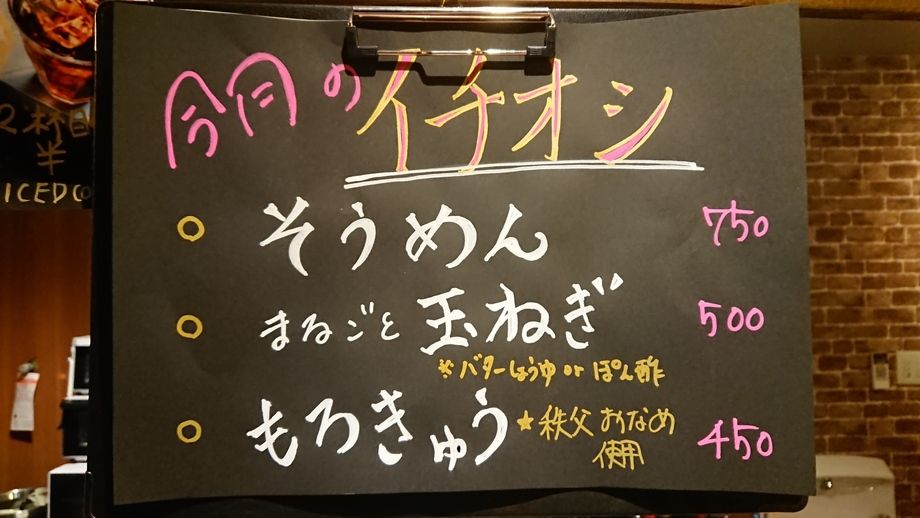 今月のイチオシ
そうめん 750
まるごと玉ねぎ 500
※バターしょうゆ or ぽん酢
もろきゅう ★秩父おなめ 450
使用
2杯目
半
ICED CO